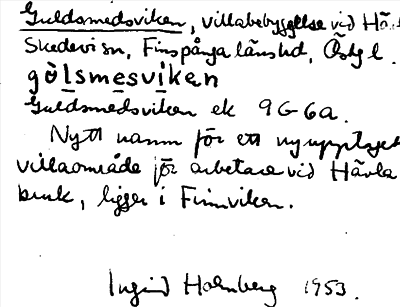 Guldsmedsviken, villabebyggelse vid Häv
Skedevi sn, Finspånga länshd, Östgl.
gòlsmesviken
Guldsmedsviken ek 9G6a.
Nytt namn för ett nyupptaget
villaområde för arbetare vid Hävla
bruk, ligger i Finnviken.
Ingrid Holmberg 1953.